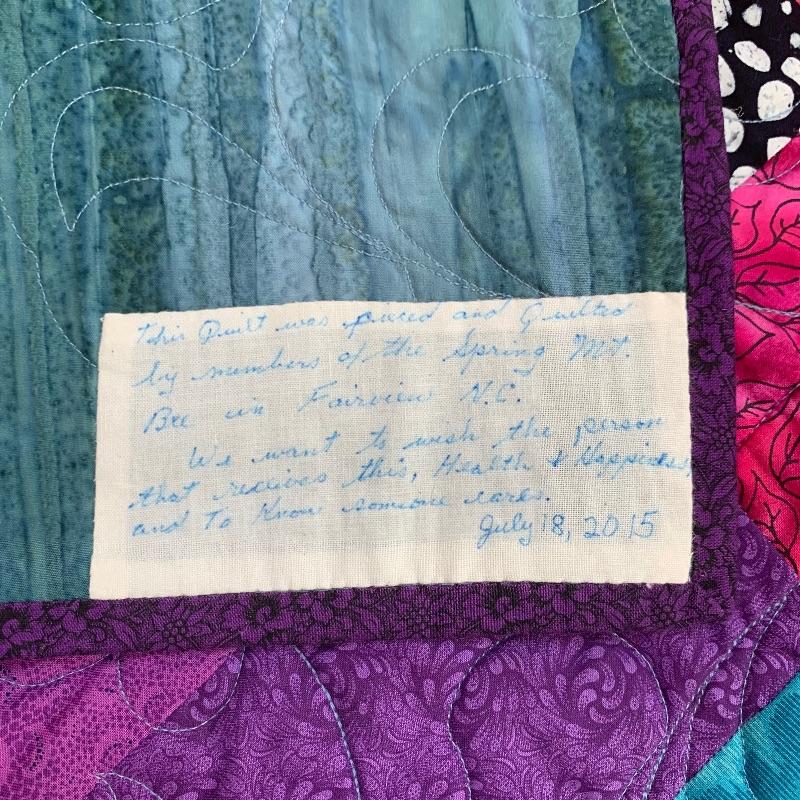 This Quilt was pieced and Quilted
by members of the Spring Mt.
Bee in Fairview N.C.
We want to wish the person
that recieves this, Health & Happiness,
and To Know someone cares.
July 18, 2015